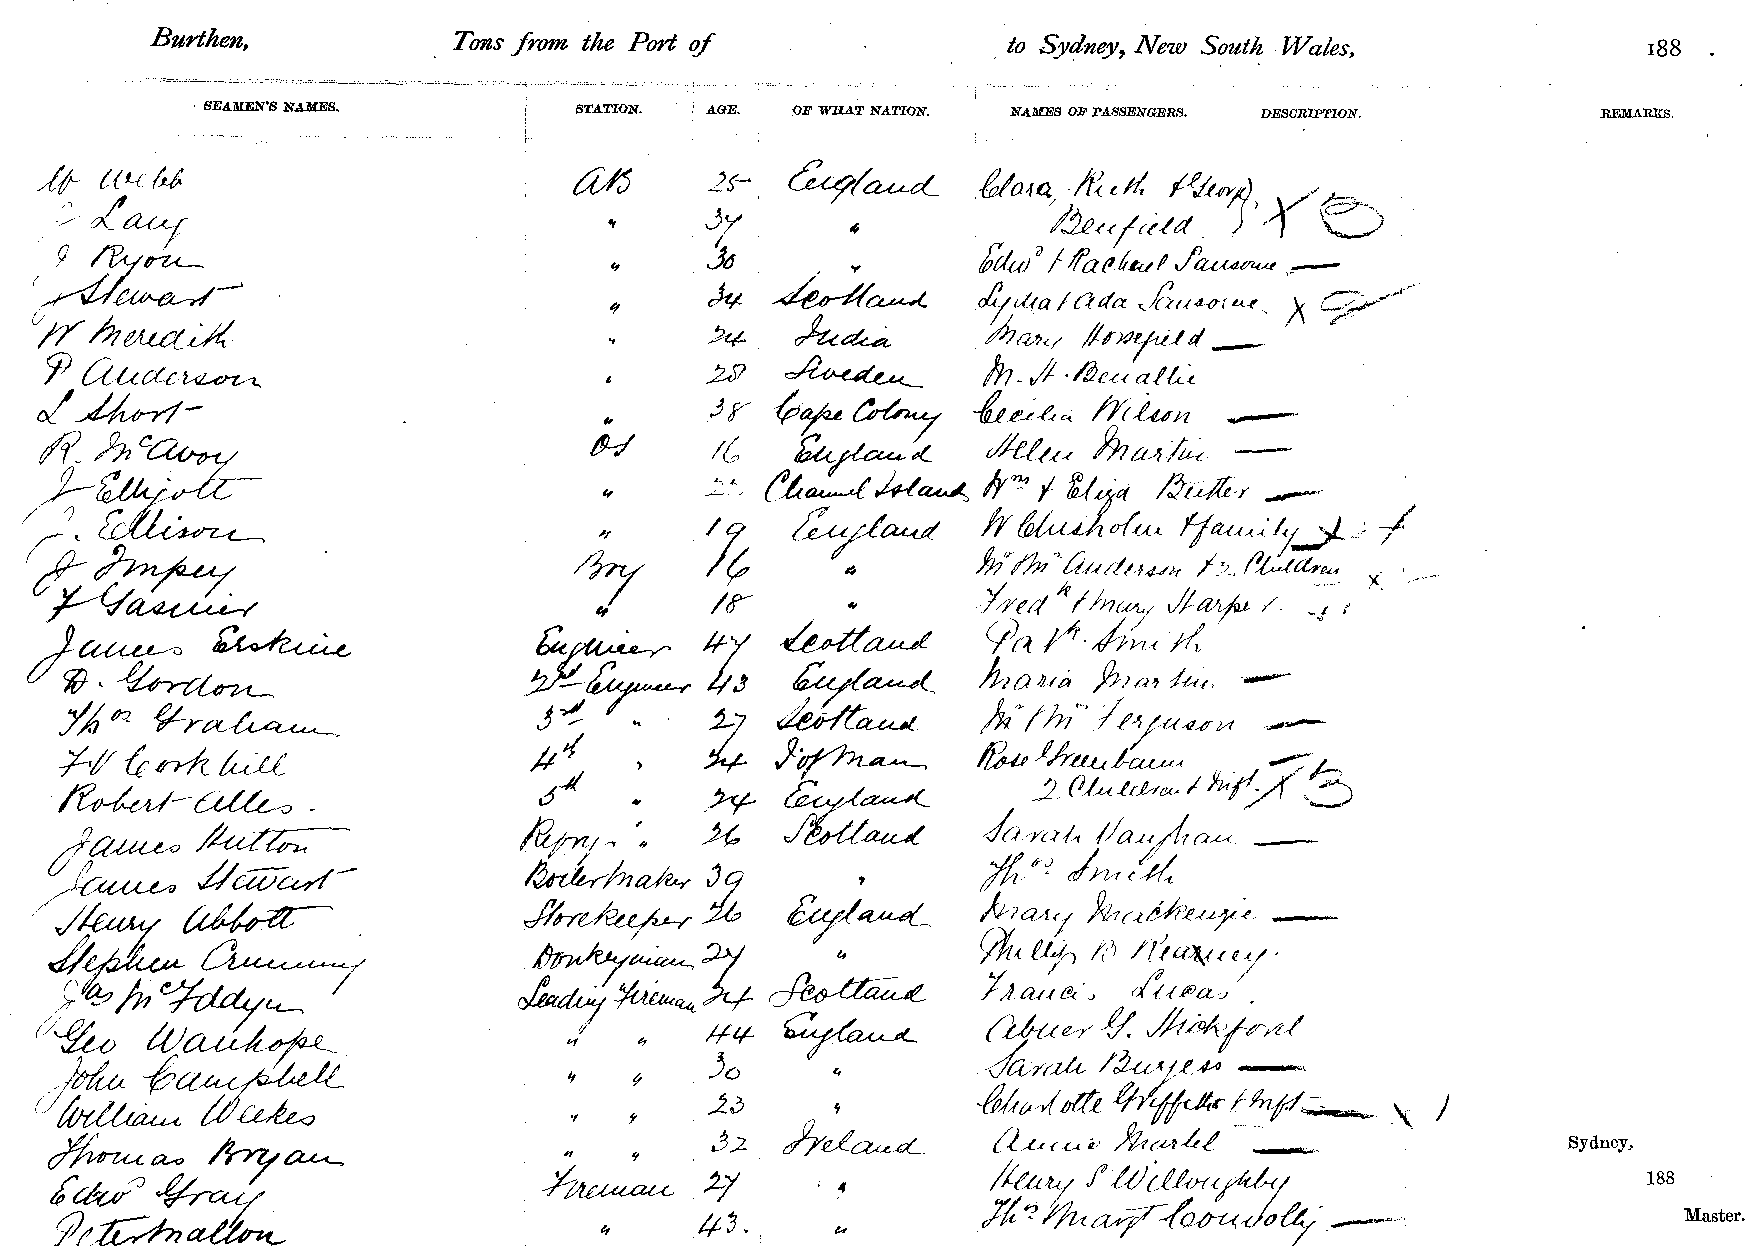 Burthen, Tons from the Port of to Sydney, New South Wales, 188
SEAMEN'S NAMES. STATION. AGE. OF WHAT NATION. NAMES OF PASSENGERS. DESCRIPTION. REMARKS.
W Webb AB 25 England Clara, Ruth & George
Lang " 37 " Benfield
J Ryon " 30 " Edwd & Rachael Sansome
J Stewart " 34 Scotland Lydia & Ada Sansome
W Meredith " 24 India Mary Horsefield
P Anderson " 28 Sweden M. H. Benallie
L Short " 38 Cape Colony Cecilia Wilson
R. McAvoy OS 16 England Helen Martin
J Ellijott " Channel Island Wm & Eliza Butter
J. Ellison " 19 England W Chisholm & family
J Impey Boy 16 " Mr Mrs Anderson & 2 Children
F Gasmier " 18 " Fredk & Mary Harpe
James Erskine Engineer 47 Scotland Patk Smith
D. Gordon 2nd Engineer 43 England Maria Martin
Thos Graham 3rd " 27 Scotland Mr Mrs Ferguson
F V Corkhill 4th " 24 I of Man Rose Greenbaum
Robert Alles. 5th " 24 England 2 Children & Inft.
James Hutton Refrig. " 26 Scotland Sarah Vaughan
James Stewart Boilermaker 39 " Thos Smith
Henry Abbott Storekeeper 26 England Mary Mackenzie
Stephen Crummy Donkeyman 27 " Phillip B Kearney.
Jas McFddyn Leading Fireman 24 Scotland Francis Lucas
Geo Wanhope " " 44 England Abner G. Hickford
John Campbell " " 30 " Sarah Burgess
William Weekes " " 23 " Charlotte Griffiths & Inft
Thomas Bryan " " 32 Ireland Annie Martel
Sydney,
Edwd Gray Fireman 27 " Henry S Willoughby
188
Peter Mallon " 43. " Thos Margt Connolly
Master.